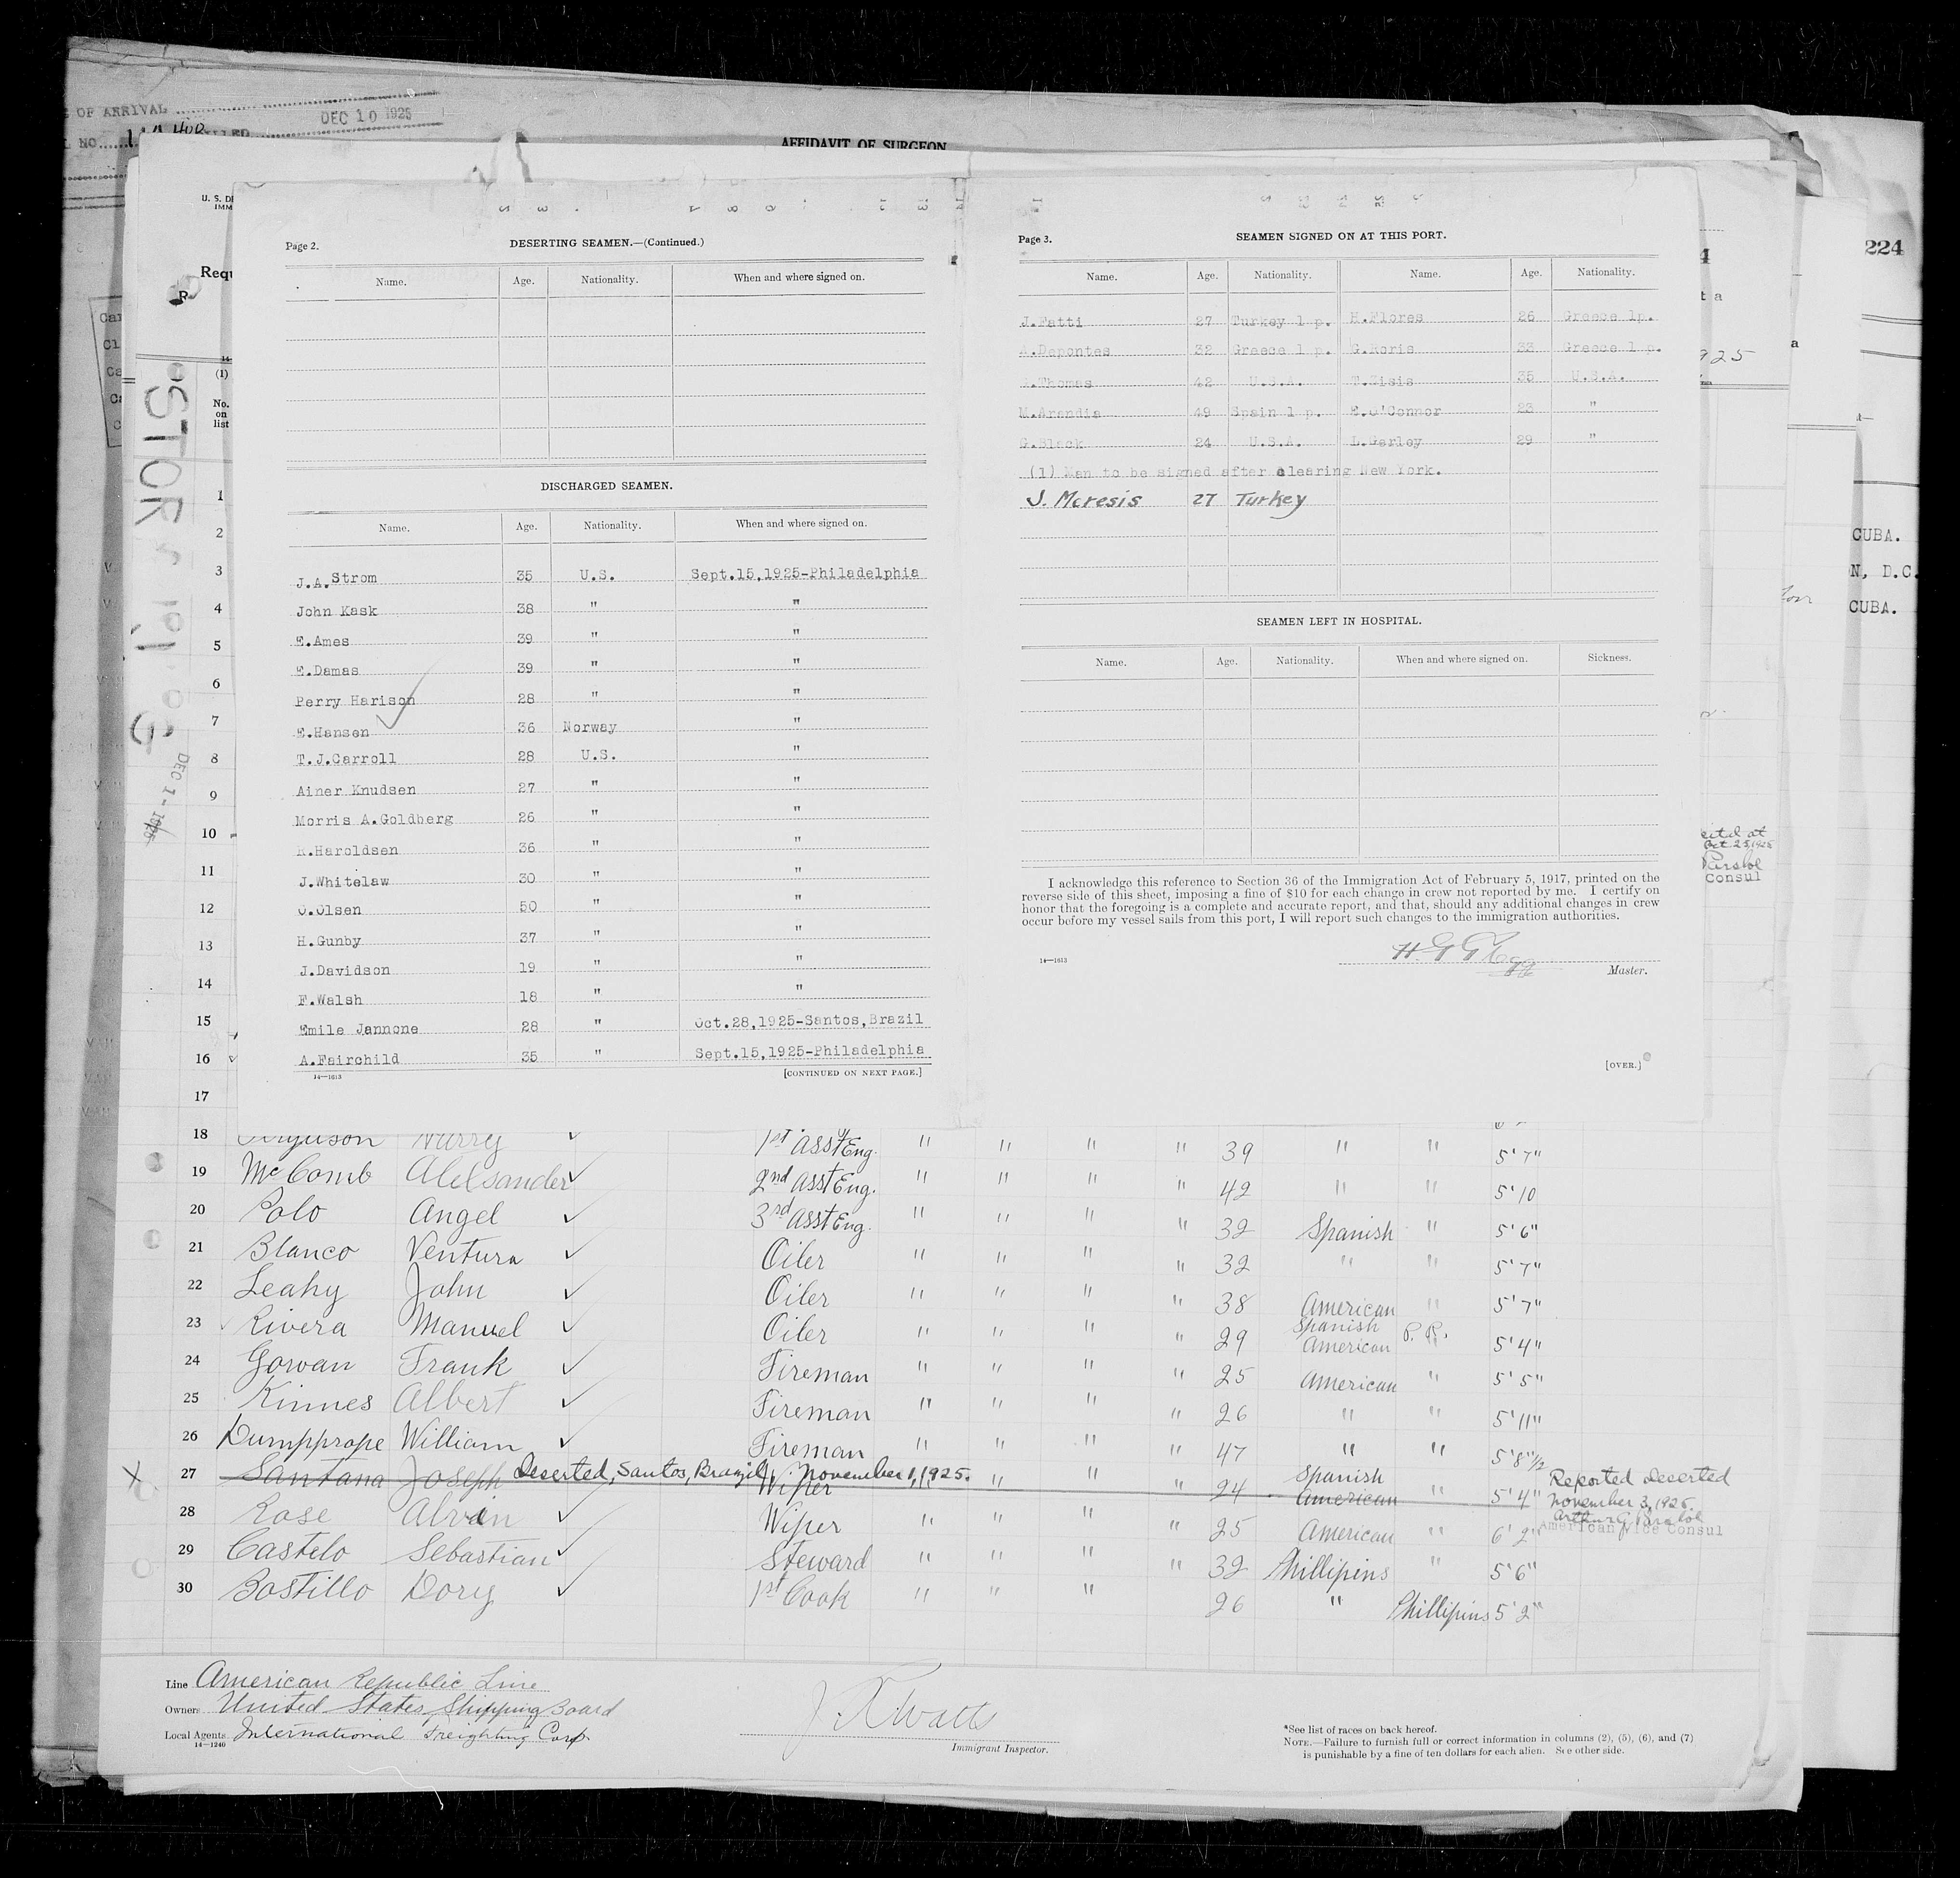 OF ARRIVAL
DEC 10 1925
NO.
AFFIDAVIT OF SURGEON
224
U. S. DE
IMM
Requ
(1)
No. on list
STOR
DEC 1 - 1925
Page 2.
DESERTING SEAMEN.—(Continued.)
Name. Age. Nationality. When and where signed on.
DISCHARGED SEAMEN.
Name. Age. Nationality. When and where signed on.
J.A.Strom 35 U.S. Sept.15,1925-Philadelphia
John Kask 38 " "
E.Ames 39 " "
E.Damas 39 " "
Perry Harison 28 " "
E.Hansen 36 Norway "
T.J.Carroll 28 U.S. "
Ainer Knudsen 27 " "
Morris A.Goldberg 26 " "
R.Haroldsen 36 " "
J.Whitelaw 30 " "
O.Olsen 50 " "
H.Gunby 37 " "
J.Davidson 19 " "
F.Walsh 18 " "
Emile Jannone 28 " Oct.28,1925-Santos,Brazil
A.Fairchild 35 " Sept.15,1925-Philadelphia
14—1613
[CONTINUED ON NEXT PAGE.]
Page 3.
SEAMEN SIGNED ON AT THIS PORT.
Name. Age. Nationality. Name. Age. Nationality.
J.Fatti 27 Turkey 1 p. H.Flores 26 Greece 1p.
A.Depontes 32 Greece 1 p. G.Roris 33 Greece 1 p.
Thomas 42 U.S.A. T.Zisis 35 U.S.A.
M.Arandia 49 Spain 1 p. E.O'Connor 23 "
G.Black 24 U.S.A. L.Gerley 29 "
(1) Man to be signed after clearing New York.
J. Mcresis 27 Turkey
SEAMEN LEFT IN HOSPITAL.
Name. Age. Nationality. When and where signed on. Sickness.
I acknowledge this reference to Section 36 of the Immigration Act of February 5, 1917, printed on the
reverse side of this sheet, imposing a fine of $10 for each change in crew not reported by me. I certify on
honor that the foregoing is a complete and accurate report, and that, should any additional changes in crew
occur before my vessel sails from this port, I will report such changes to the immigration authorities.
14—1613
Master.
[OVER.]
t a
925
CUBA.
N, D.C.
CUBA.
Oct. 25, 1925
Consul
1
2
3
4
5
6
7
8
9
10
11
12
13
14
15
16
17
18 Ferguson Harry 1st Asst Eng. " " " " 39 " " 5'7"
19 McComb Alelsander 2nd Asst Eng. " " " " 42 " " 5'10
20 Polo Angel 3rd Asst Eng. " " " " 32 Spanish " 5'6"
21 Blanco Ventura Oiler " " " " 32 " " 5'7"
22 Leahy John Oiler " " " " 38 American " 5'7"
23 Rivera Manuel Oiler " " " " 29 Spanish American P.R. 5'4"
24 Gowan Frank Fireman " " " " 25 American " 5'5"
25 Kinnes Albert Fireman " " " " 26 " " 5'11"
26 Dumpprope William Fireman " " " " 47 " " 5'8"1/2
X 27 Santana Joseph Deserted, Santos, Brazil, November 1, 1925. Wiper " " 24 Spanish American " 5'4" Reported Deserted
November 3, 1925.
American Vice Consul
28 Rose Alvin Wiper " " " " 25 American " 6'2"
29 Castelo Sebastian Steward " " " " 32 Phillipins " 5'6"
30 Bostillo Dory 1st Cook " " " 26 " Phillipins 5'2"
Line American Republic Line
Owners United States Shipping Board
Local Agents International Freighting Corp.
14—1240
J. Watts
Immigrant Inspector.
*See list of races on back hereof.
NOTE.—Failure to furnish full or correct information in columns (2), (5), (6), and (7)
is punishable by a fine of ten dollars for each alien. See other side.